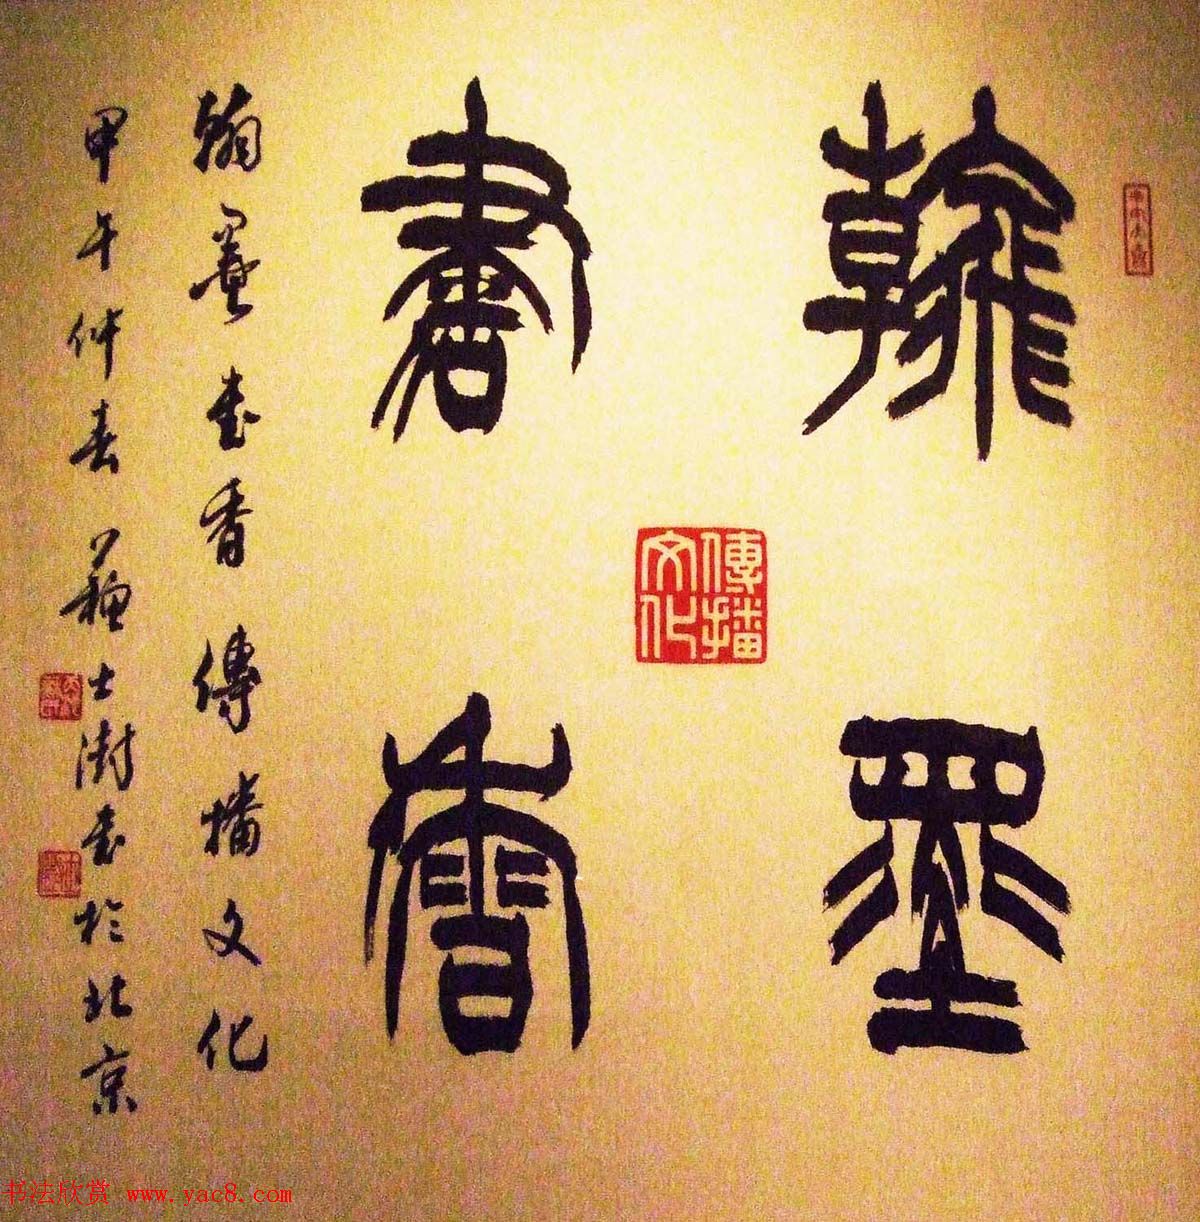 翰墨
書香
傳播
文化
翰墨書香傳播文化
甲午仲春蘇士澍書於北京
书法欣赏 www.yac8.com